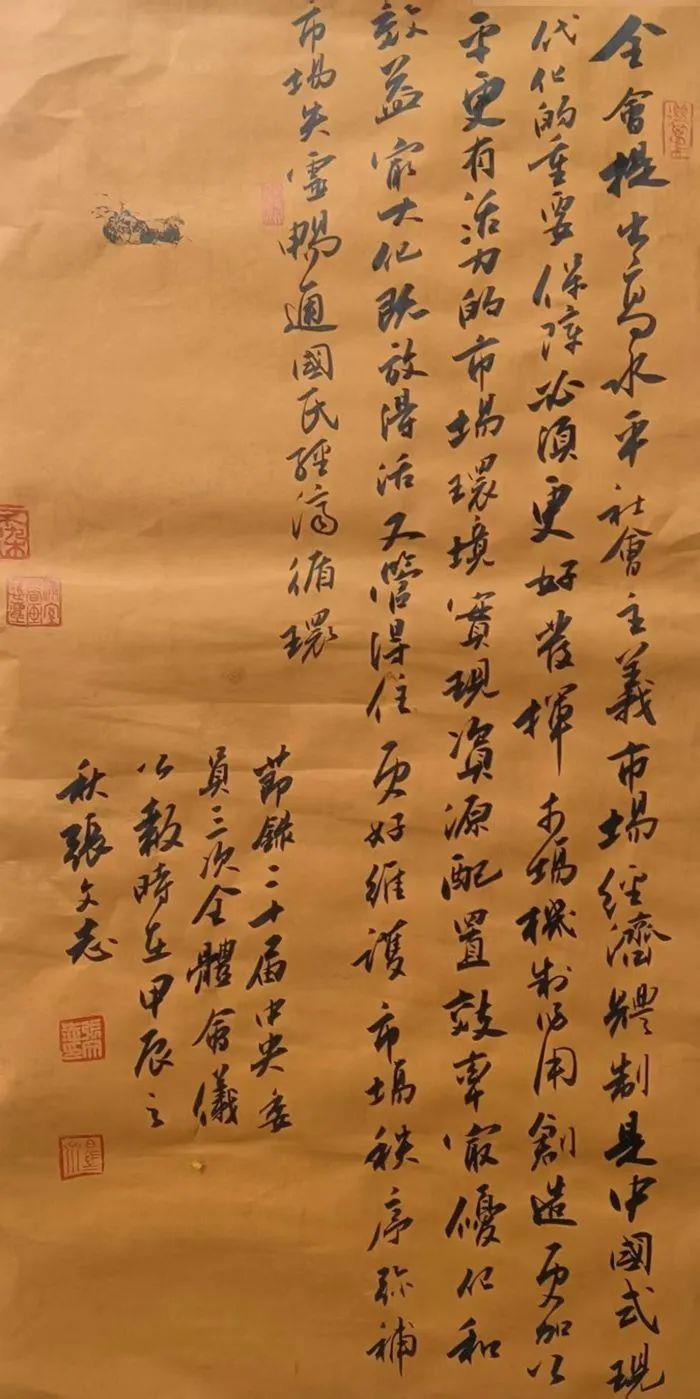 全會提出高水平社會主義市場經濟體制是中國式現
代化的重要保障必須更好發揮市場機制作用創造更加公
平更有活力的市場環境實現資源配置效率最優化和
效益最大化既放得活又管得住更好維護市場秩序弥補
市場失靈暢通國民經濟循環
節錄二十届中央委
員三次全體會儀
公報時在甲辰之
秋張文志